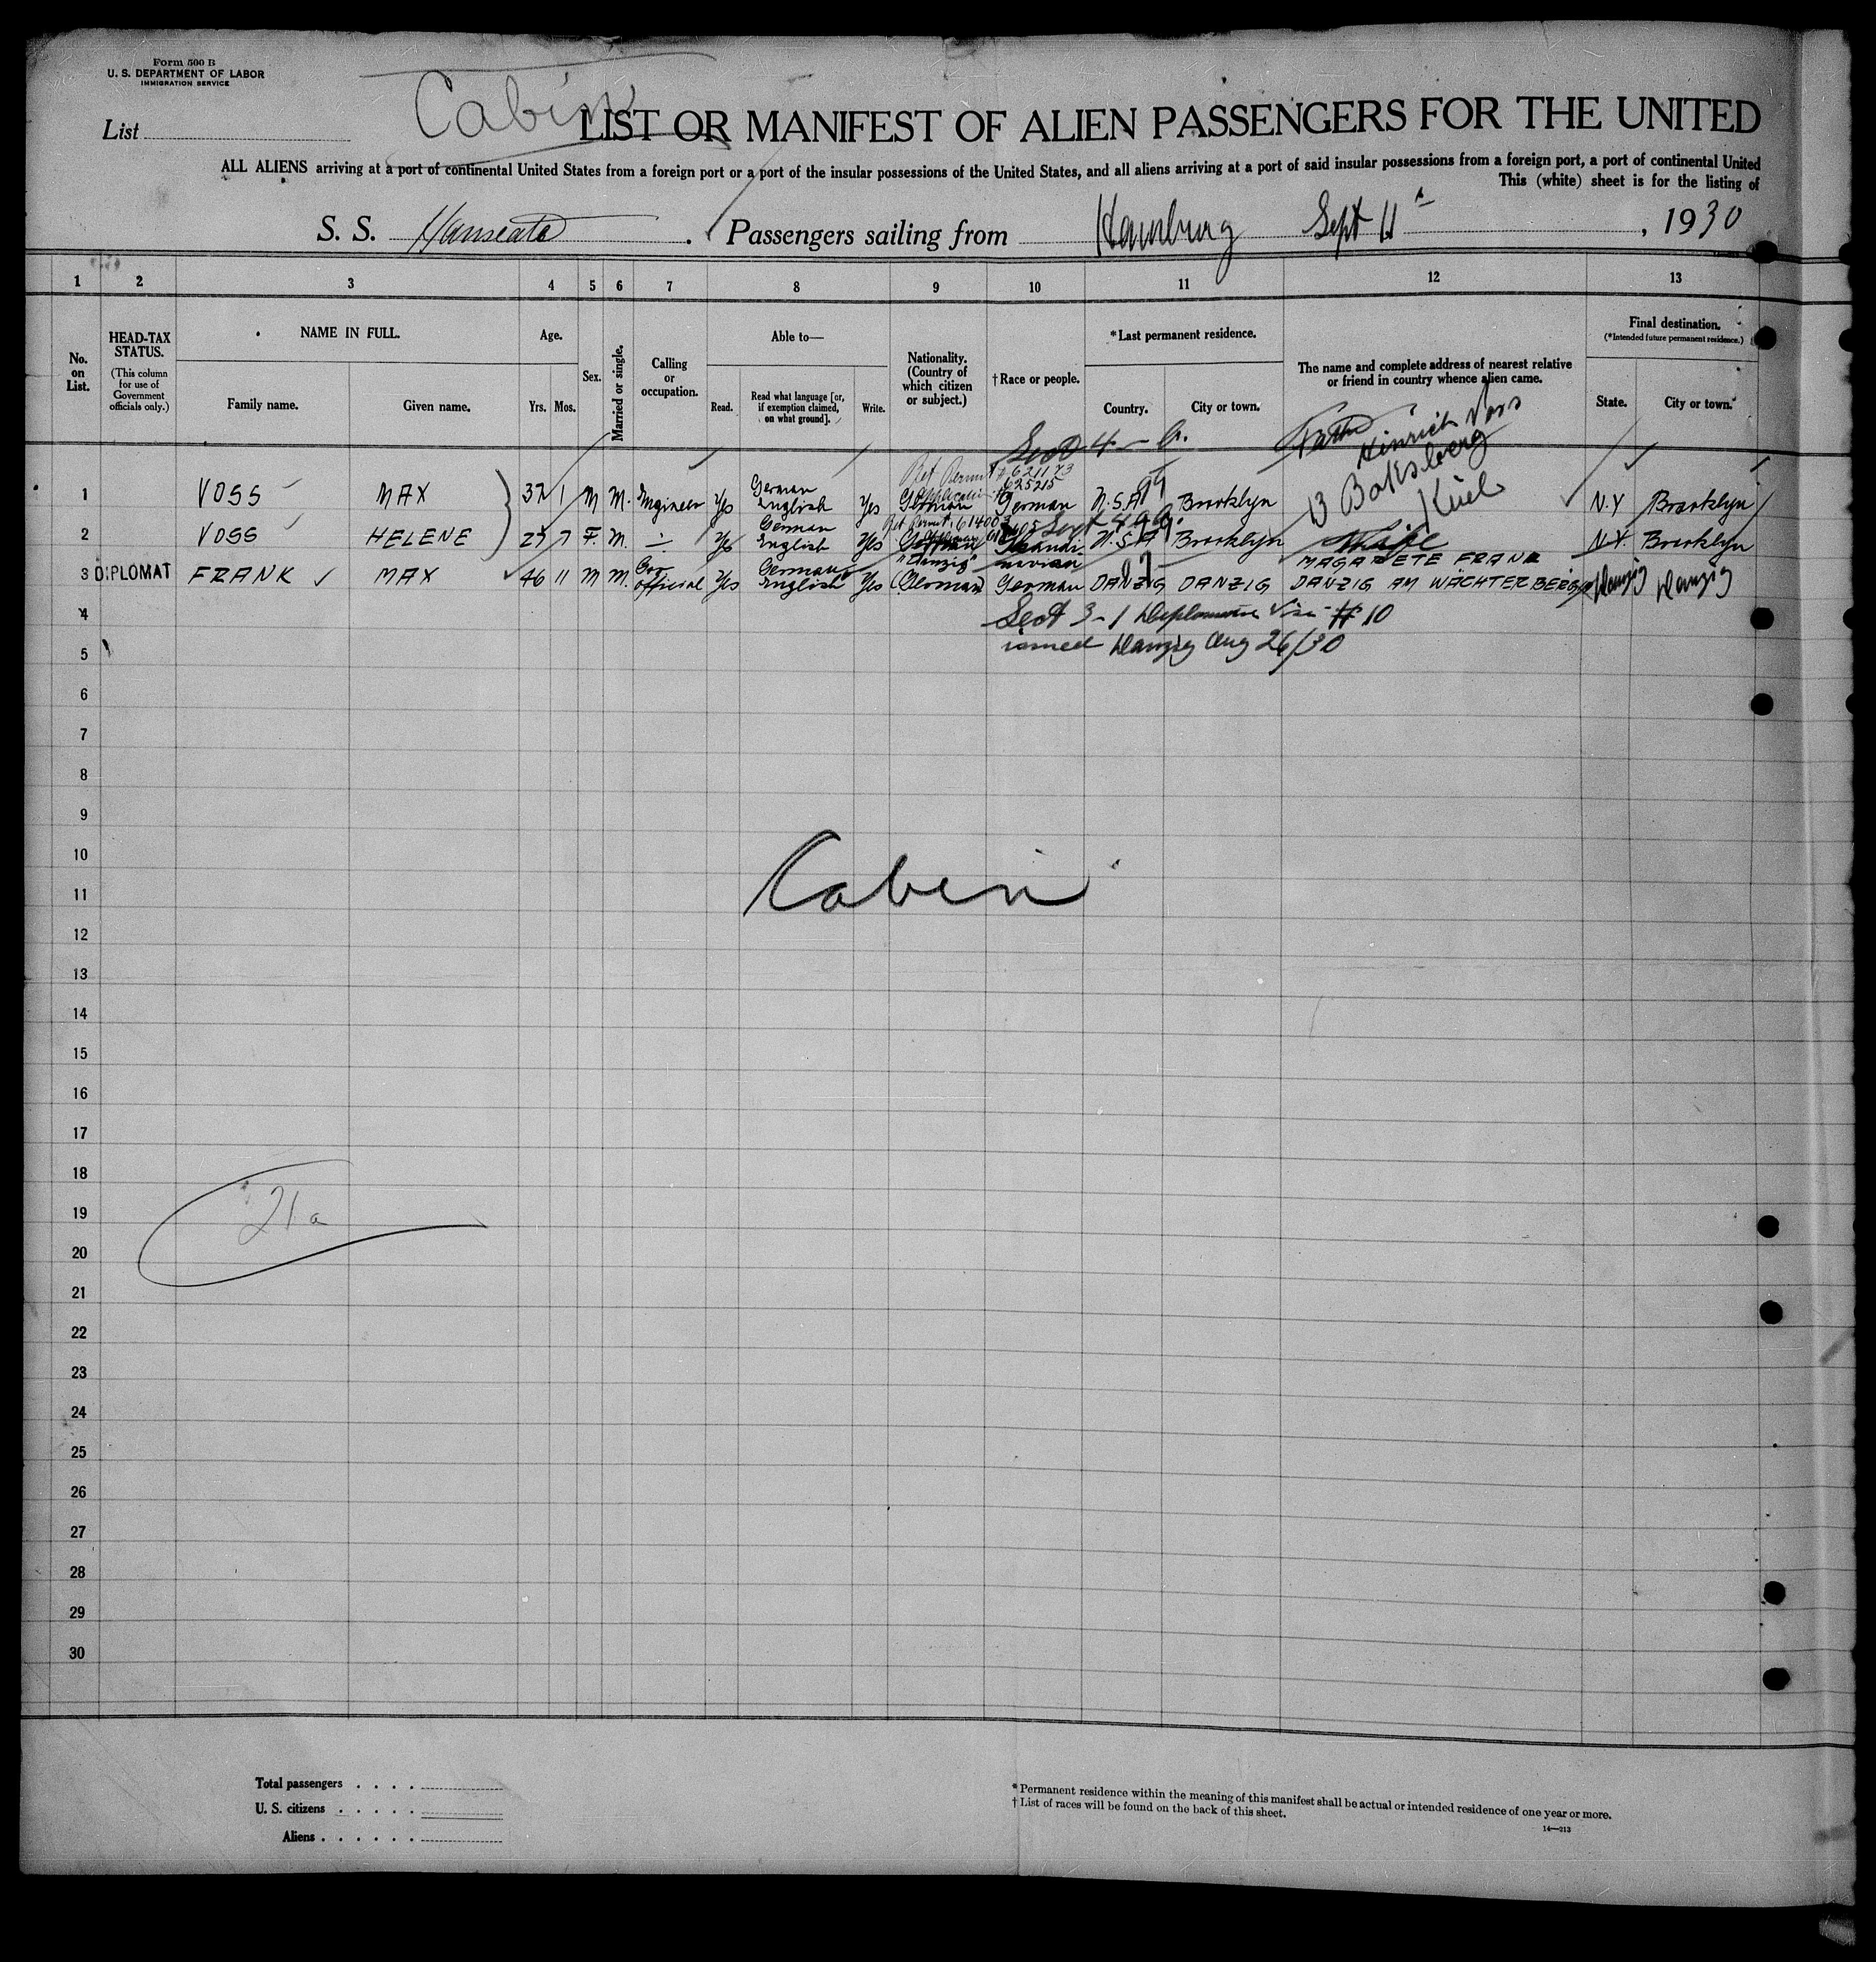 Form 500 B
U. S. DEPARTMENT OF LABOR
IMMIGRATION SERVICE
Cabin
List
LIST OR MANIFEST OF ALIEN PASSENGERS FOR THE UNITED
ALL ALIENS arriving at a port of continental United States from a foreign port or a port of the insular possessions of the United States, and all aliens arriving at a port of said insular possessions from a foreign port, a port of continental United
This (white) sheet is for the listing of
S. S. Hanseata. Passengers sailing from Hamburg Sept 11th, 1930
1 2 3 4 5 6 7 8 9 10 11 12 13
No. on List.
HEAD-TAX STATUS.
(This column for use of Government officials only.)
NAME IN FULL.
Family name. Given name.
Age.
Yrs. Mos.
Sex.
Married or single.
Calling or occupation.
Able to—
Read. Read what language [or, if exemption claimed, on what ground]. Write.
Nationality. (Country of which citizen or subject.)
† Race or people.
* Last permanent residence.
Country. City or town.
The name and complete address of nearest relative or friend in country whence alien came.
Final destination.
(*Intended future permanent residence.)
State. City or town.
Sect 4 - b.
Father Hinrich Voss
13 Boksberg
Kiel
Ret Permit # 621173
625215
1 VOSS MAX 37 1 M M. Engineer Yes German English Yes German German U.S.A Brooklyn N.Y Brooklyn
Ret Permit 614003
2 VOSS HELENE F. M. Yes German English Yes Skandinavian U.S.A Brooklyn N.Y. Brooklyn
3 DIPLOMAT FRANK MAX 46 11 M M. Gov official Yes German English Yes "Danzig" (German) German DANZIG DANZIG Wife MAGARETE FRANK DANZIG AM WÄCHTERBERG Danzig Danzig
4 Sect 3-1 Diplomatic Visa # 10
5 issued Danzig Aug 26/30
6
7
8
9
10
Cabin
11
12
13
14
15
16
17
18
19
21a
20
21
22
23
24
25
26
27
28
29
30
Total passengers
U. S. citizens
Aliens
* Permanent residence within the meaning of this manifest shall be actual or intended residence of one year or more.
† List of races will be found on the back of this sheet.
14—213